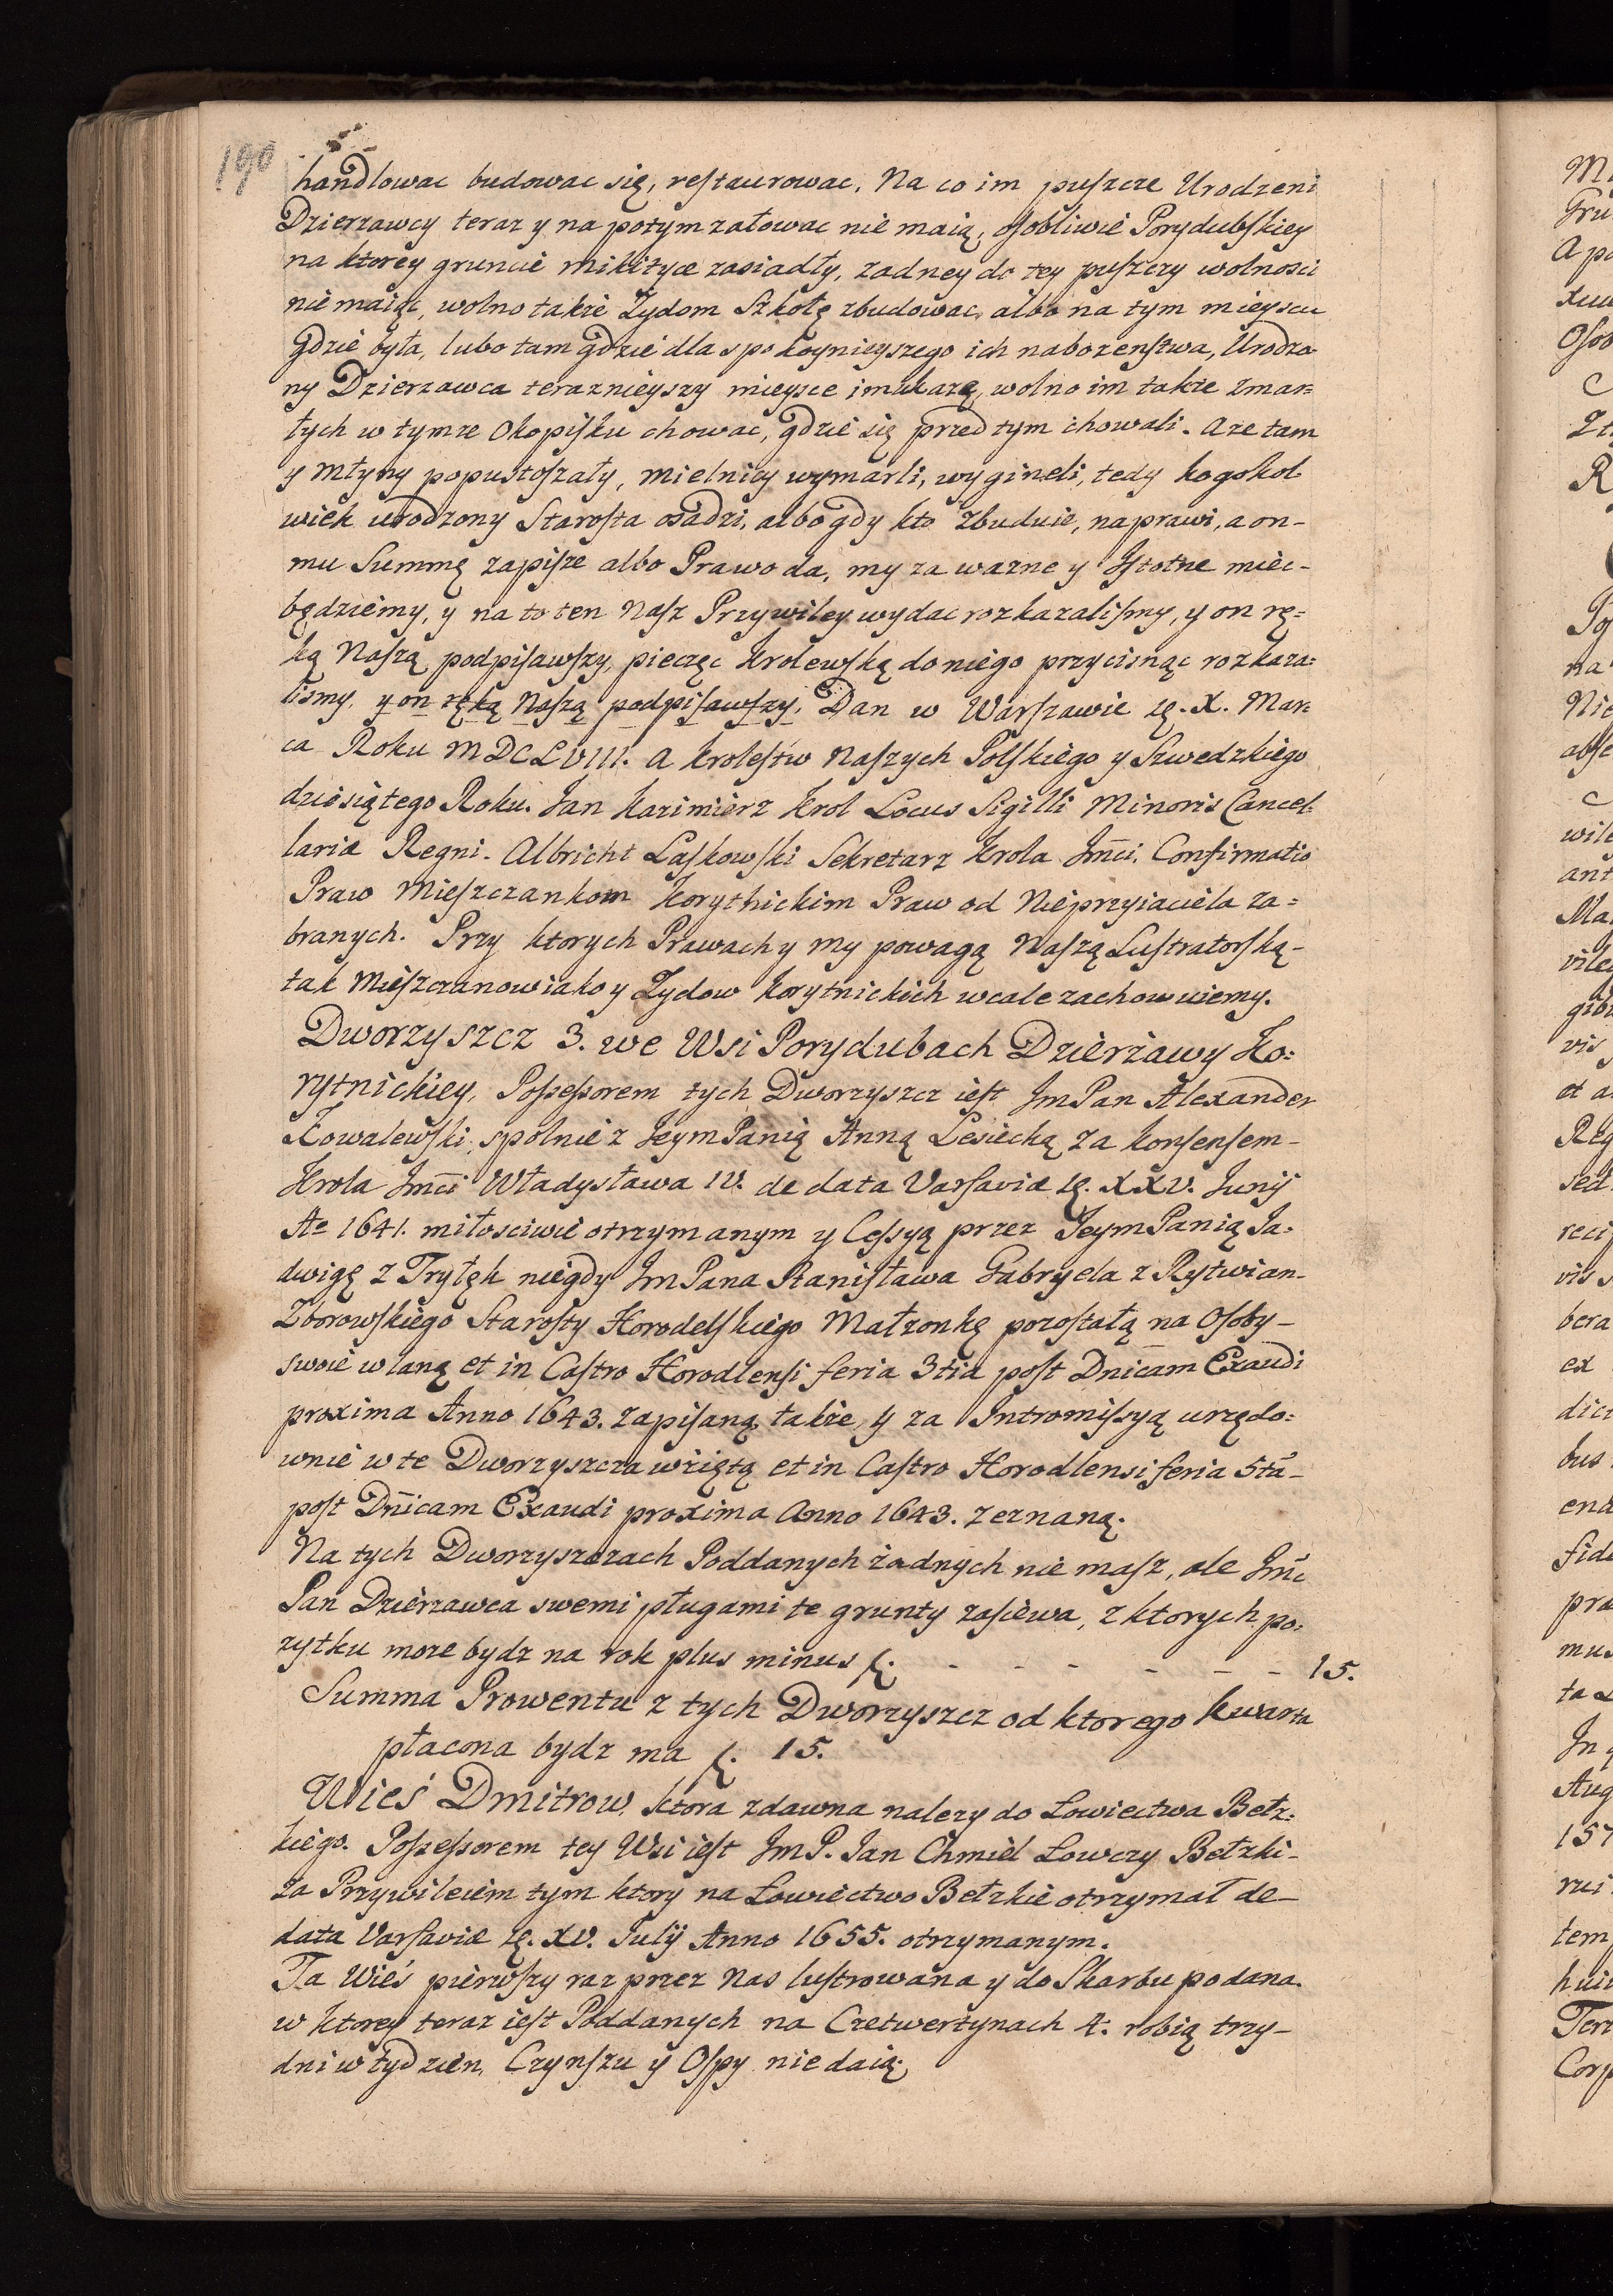 190
handlowac budowac się, restaurowac. Na co im puszcze Urodzeni
Dzierzawcy teraz y na potym załowac nie maią, osobliwie Porydubskiey
na ktorey gruncie Mikityce zasiadły, zadney do tey puszczy wolnosci
nie maiąc, wolno takze Zydom Szkołę zbudowac, albo na tym mieyscu
gdzie była, lubo tam gdzie dla spokoynieyszego ich nabozenstwa, Urodzo-
ny Dzierzawca teraznieyszy mieysce im ukazę, wolno im takze zmar=
łych w tymze Okopisku chowac, gdzie się przed tym chowali. A ze tam
y Młyny popustoszały, mielnicy wymarli, wygineli, tedy kogokol-
wiek urodzony Starosta osadzi, albo gdy kto zbuduie, naprawi, a on-
mu Summę zapisze albo Prawo da, my za wazne y Istotne miec-
będziemy, y na to ten Nasz Przywiley wydac rozkazalismy, y on rę=
ką Naszą podpisawszy, pieczęc Krolewską do niego przycisnąc rozkaza=
lismy. y on ręką Naszą podpisawszy. Dan w Warszawie D. X. Mar=
ca Roku MDCLVIII. a Krolestw Naszych Polskiego y Szwedzkiego
dziesiątego Roku. Jan Kazimierz Krol Locus Sigilli Minoris Cancel-
lariæ Regni. Albricht Laskowski Sekretarz Krola Jmci. Confirmatio
Praw Mieszczankom Korythickim Praw od Nieprzyiaciela za=
branych. Przy ktorych Prawach y my powagą Naszą Lustratorską-
tak Mieszczanow iako y Zydow Korytnickich wcale zachowuiemy.
Dworzyszcz 3. we Wsi Porydubach Dzierżawy Ko=
rytnickiey, Possessorem tych Dworzyszcz iest Jm Pan Alexander
Kowalewski, spolnie z Jeym Panią Anną Lesiecką za konsensem-
Krola Jmci Władysława IV. de data Varsaviæ D. XXV. Junij
Ao 1641. miłosciwie otrzymanym y Cessyą przez Jeym Panią Ja=
dwigę z Tryłęk niegdy Jm Pana Stanisława Gabryela z Rytwian-
Zborowskiego Starosty Horodelskiego Małzonkę pozostałą na Osoby-
swoie wlaną et in Castro Horodlensi feria 3tia post Dnicam Exaudi
proxima Anno 1643. zapisaną, takze y za Intromissyą urzędo=
wnie w te Dworzyszcza wziętą et in Castro Horodlensi feria 5ta-
post Dnicam Exaudi proxima Anno 1643. zeznaną.
Na tych Dworzyszczach Poddanych żadnych nie masz, ale Jmc
Pan Dzierzawca swemi pługami te grunty zasiewa, z ktorych po=
zytku moze bydz na rok plus minus f. - - - - - - 15.
Summa Prowentu z tych Dworzyszcz od ktorego kwarta
płacona bydz ma f. 15.
Wieś Dmitrow, ktora zdawna nalezy do Łowiectwa Bełz=
kiego. Possessorem tey Wsi iest Jm P. Jan Chmiel Łowczy Bełzki-
za Przywileiem tym ktory na Łowiectwo Bełzkie otrzymał de-
data Varsaviæ D. XV. Julij Anno 1655. otrzymanym.
Ta Wieś pierwszy raz przez Nas lustrowana y do Skarbu podana.
w ktorey teraz iest Poddanych na Czetwertynach 4. robią trzy-
dni w tydzien, Czynszu y Ospy nie daią.